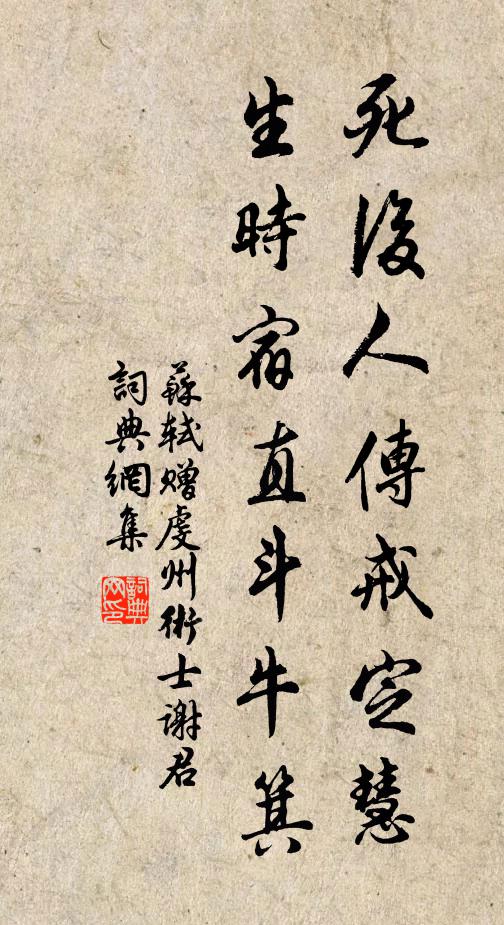 死後人傳戒定慧
生時宿直斗牛箕
蘇軾贈虔州術士謝君
詞典網集
詞典網印